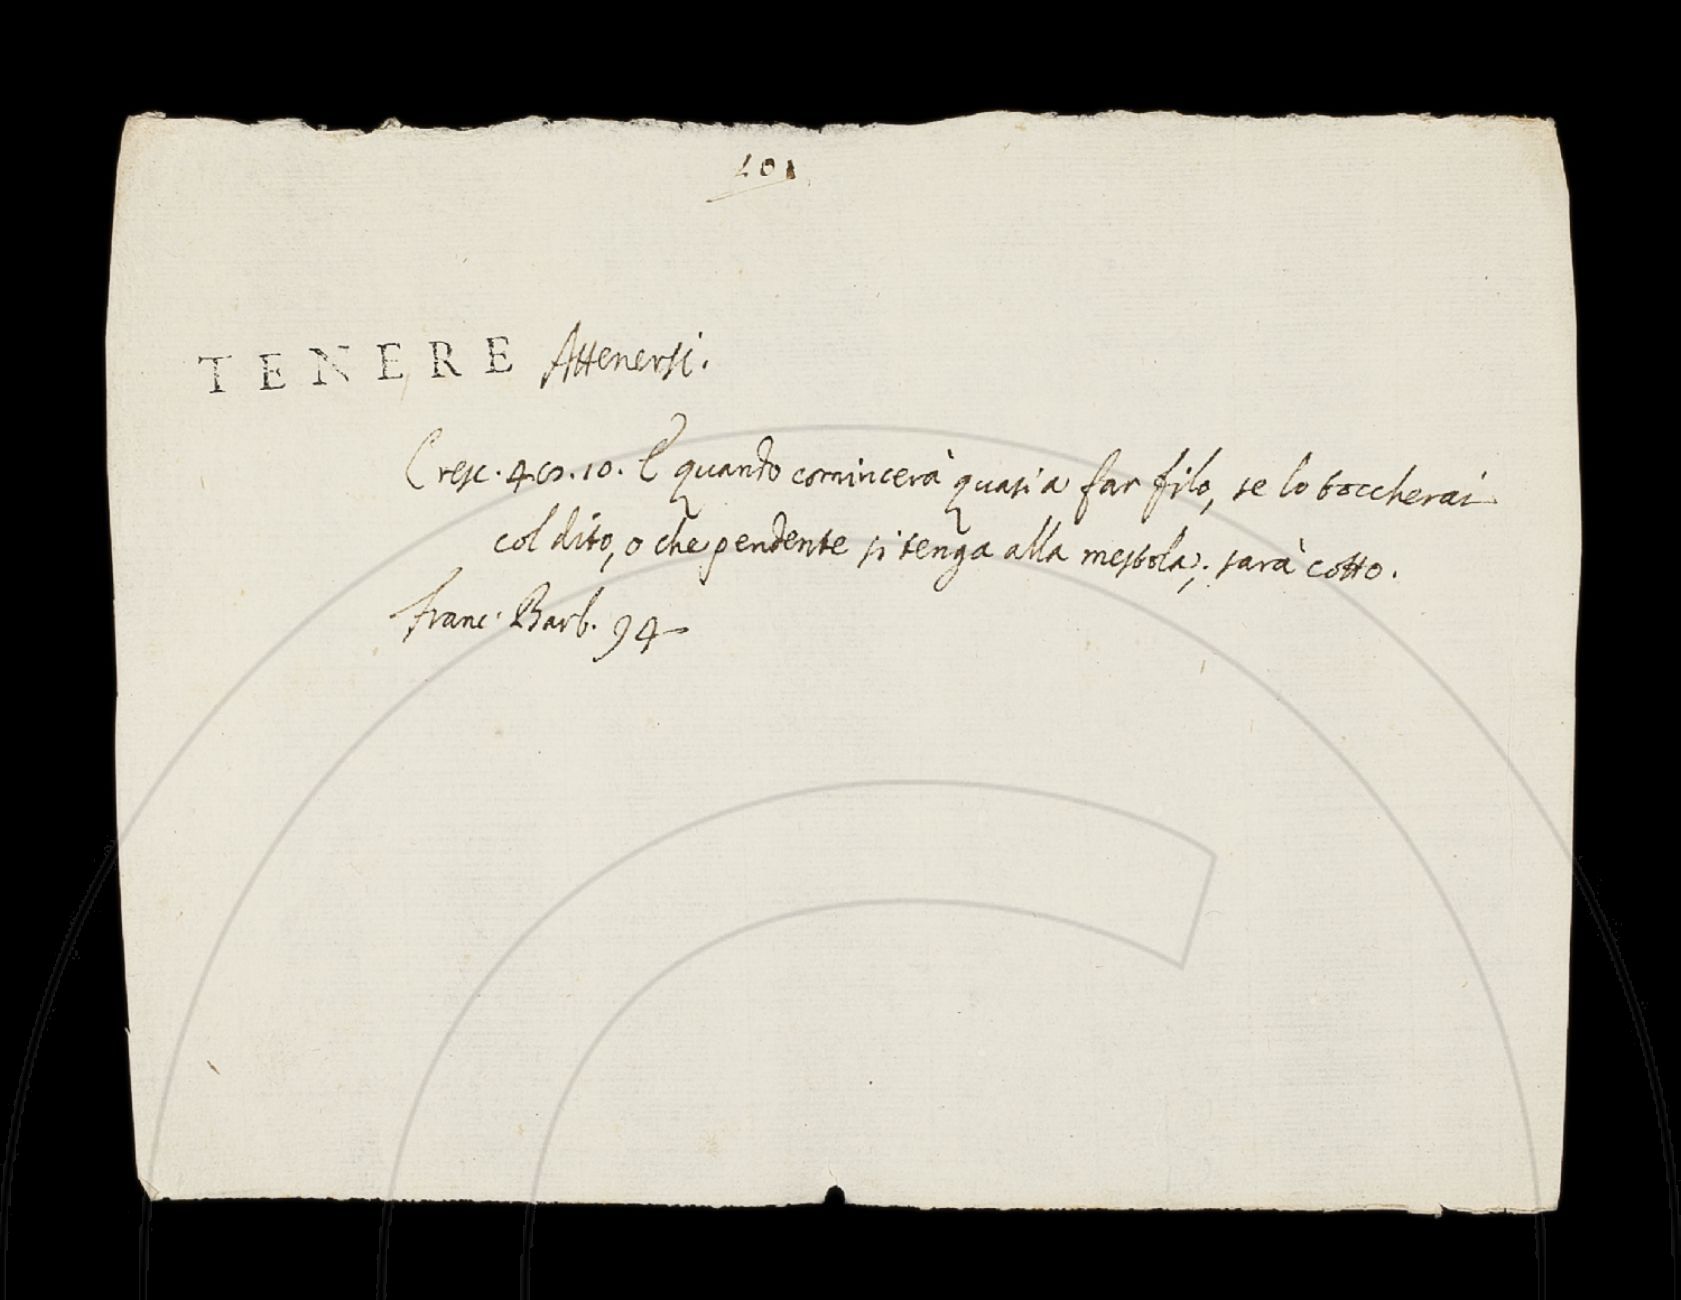 101
TENERE Attenersi.
Cresc. 4. 10. E quando comincerà quasi a far filo, se lo toccherai
col dito, o che pendente si tenga alla mestola; sarà cotto.
Franc. Barb. 94